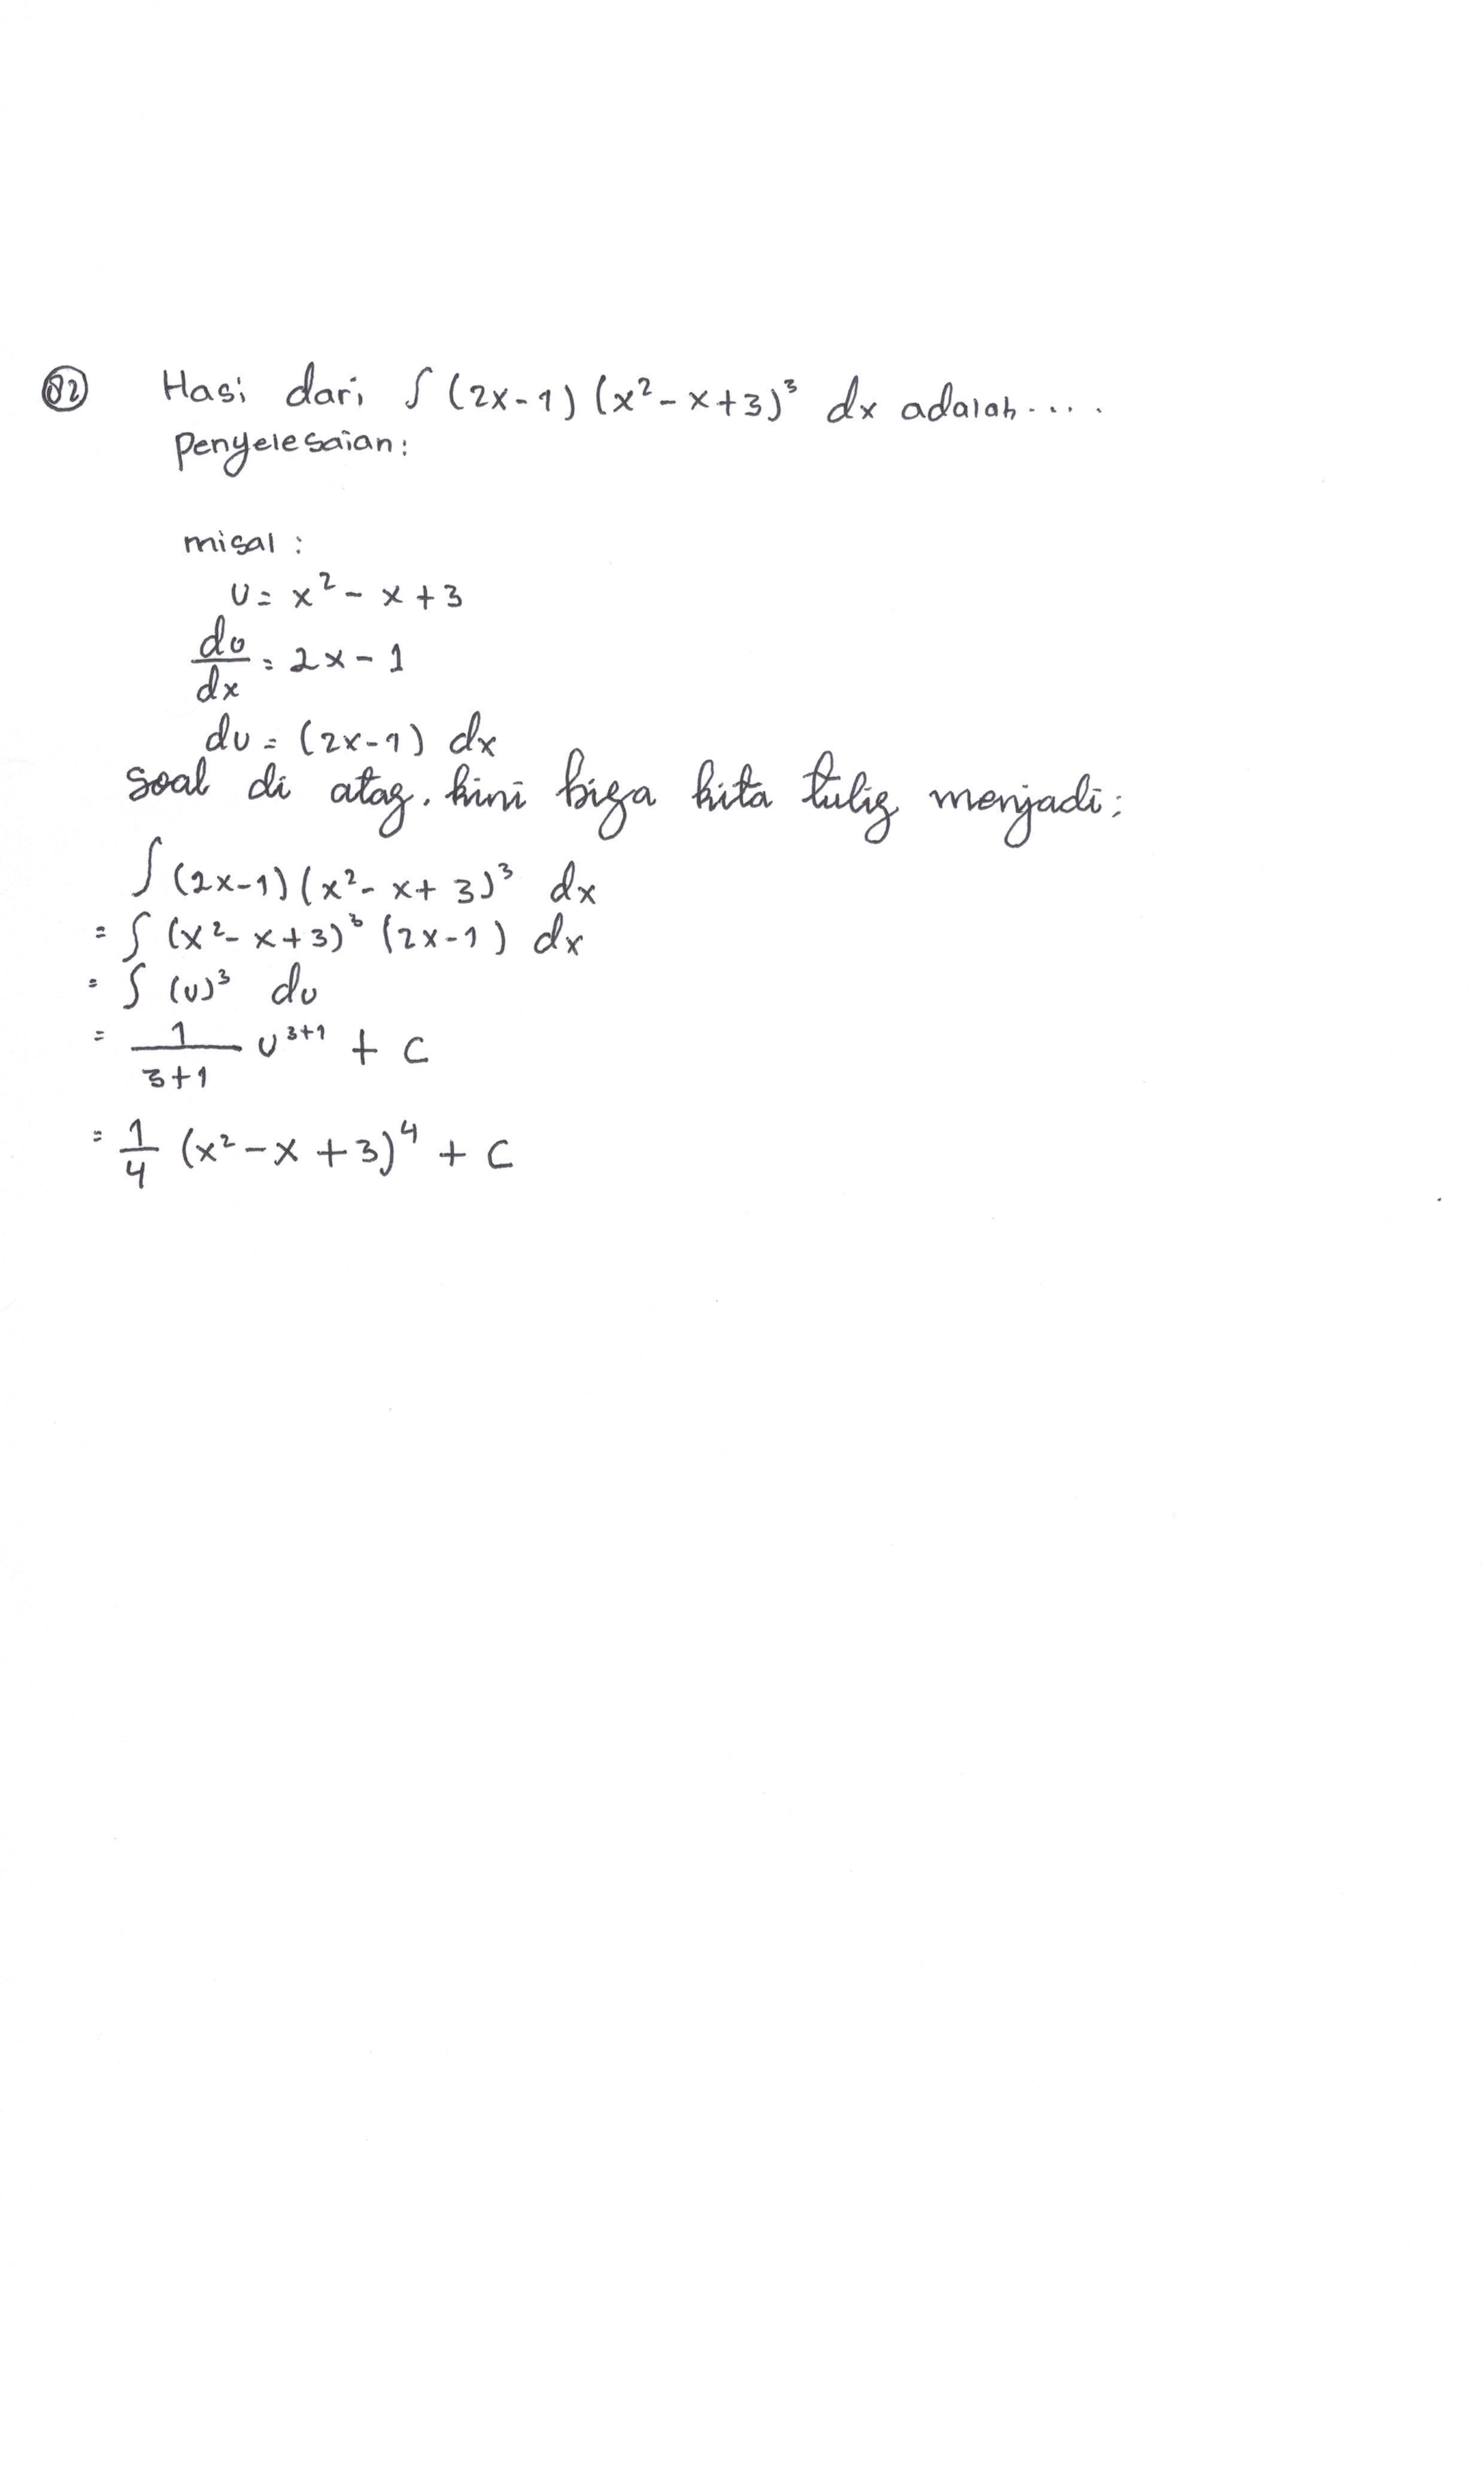 02 Hasi dari ∫ (2x-1) (x²-x+3)³ dx adalah....
Penyelesaian:
misal:
U = x² - x + 3
du/dx = 2x - 1
du = (2x-1) dx
soal di atas, kini bisa kita tulis menjadi:
∫ (2x-1) (x² - x + 3)³ dx
= ∫ (x² - x + 3)³ (2x-1) dx
= ∫ (u)³ du
= 1/(3+1) U³⁺¹ + C
= 1/4 (x² - x + 3)⁴ + C